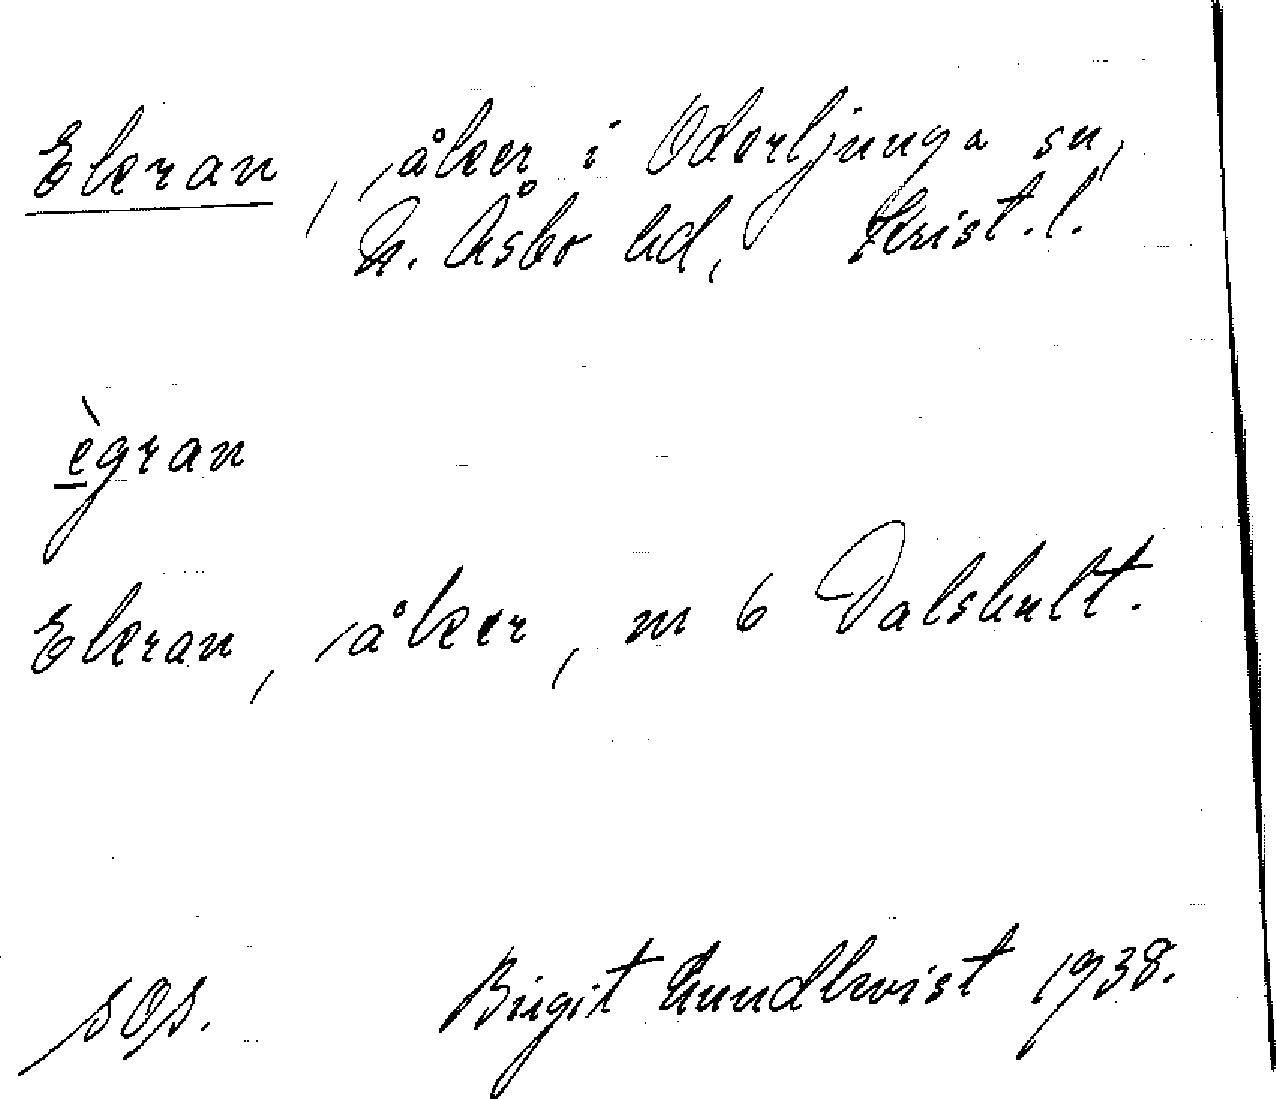 Ekran, åker i Oderljunga sn,
N. Åsbo hd, Krist. l.
ègran
Ekran, åker, n 6 Dalshult.
sOs. Birgit Lundkvist 1938.